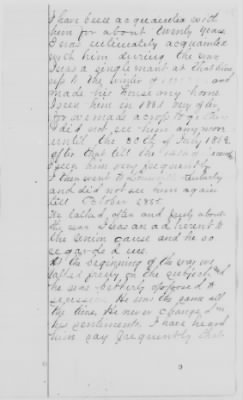 I have been acquainted with
him for about twenty years
I was intimately acquainted
with him during the war
I was a single man at that time
up to the winter of and
made his house my home
I seen him in 1861 very often
for we made a crop together
I did not see him any more
until the 20th of July 1862
after that till the
I seen him very frequently
I then went to
and did not see him again
till October 1865
He talked often and freely about
the war I was an adherent to
the Union cause and he so
regarded me
At the beginning of the war we
talked freely on the subject and
he was bitterly opposed to
secession He was the same all
the time He never changed in
his sentiments I have heard
him say frequently that